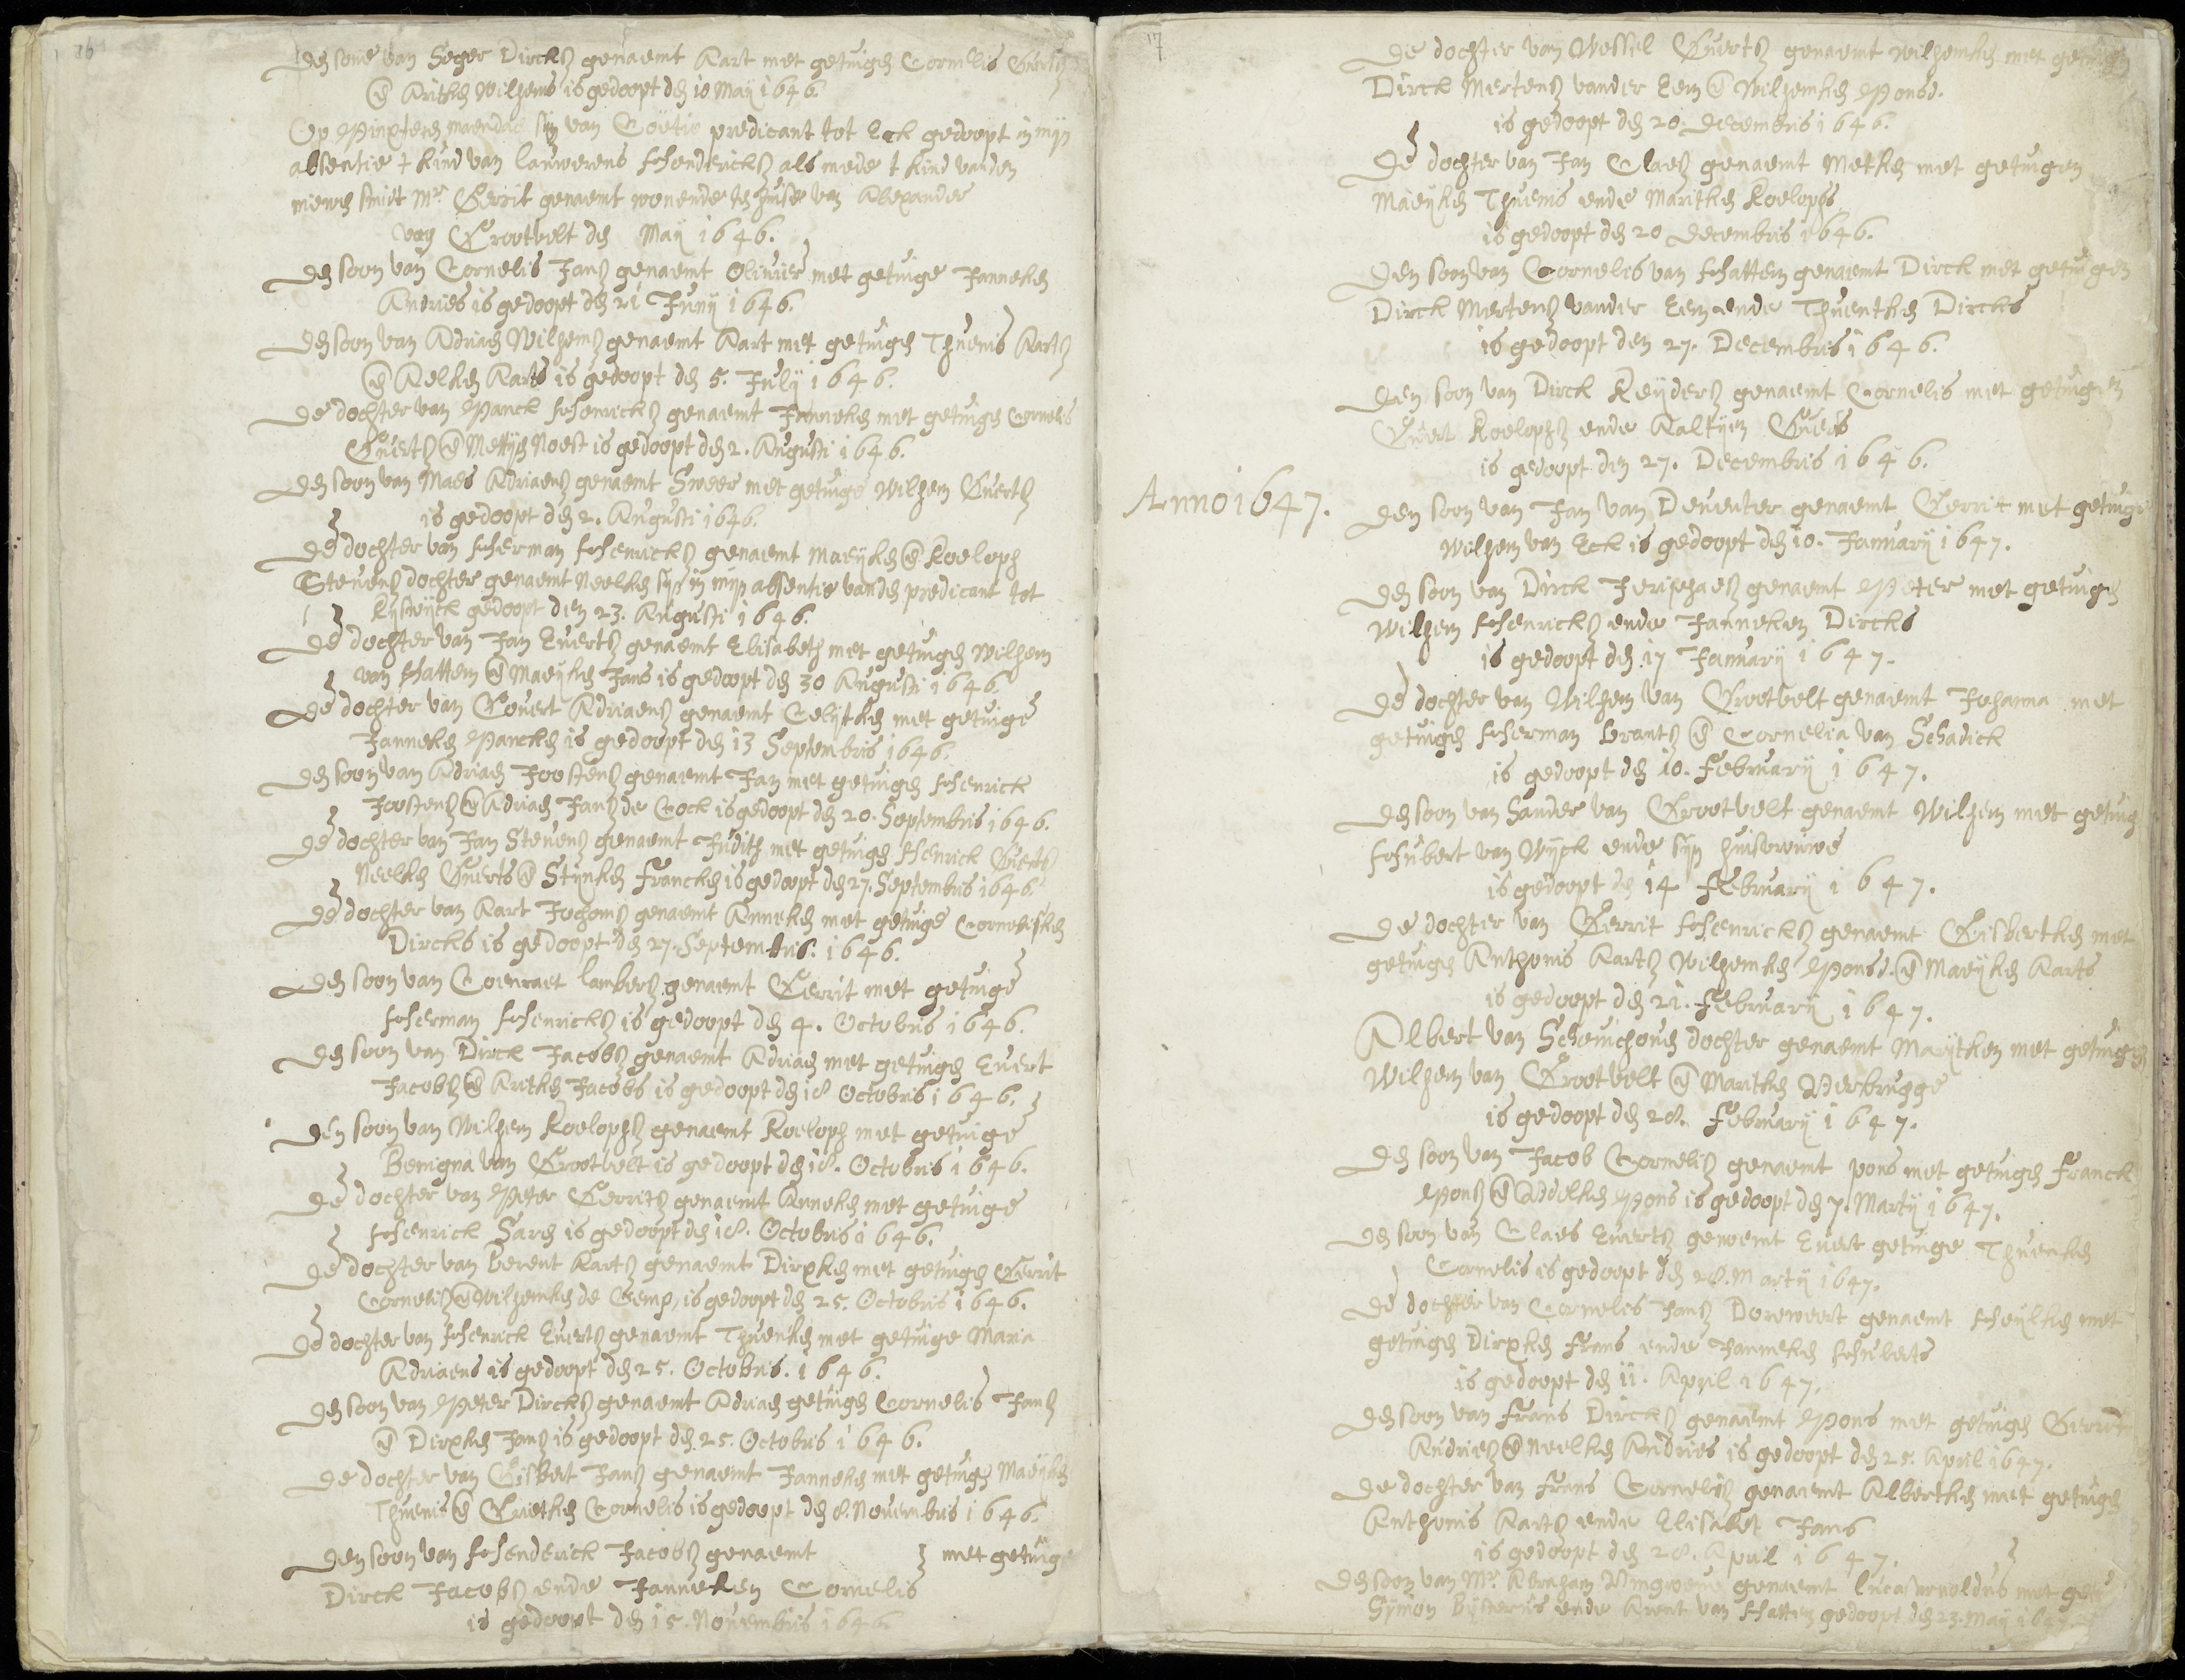 16
Den sone van Seger Dircks genaemt Aart met getuigen Cornelis Guerts
en Aritken Wilhems is gedoopt den 10 Maÿ 1646.
Op Pinxteren maendach sijn van predicant tot Eck gedoopt in mijn
absentie t kind van Lauwerens Henderickß als mede t kind van den
smidt Mr. Gerrit genaemt wonende ten huise van Alexander
van Grootvelt den Maÿ 1646.
Den soon van Cornelis Janß genaemt Olivier met getuige Janneken
Andries is gedoopt den 21 Junÿ 1646.
Den soon van Adriaen Wilhemß genaemt Aart met getuigen Thuenis Aartß
en Aelken Aarts is gedoopt den 5. Julÿ 1646.
De dochter van Panck Henrickß genaemt Janneken met getuigen Cornelis
Guertß en Mettijen Noest is gedoopt den 2. Augusti 1646.
Den soon van Maes Adriaenß genaemt Sweer met getuige Wilhem Guertß
is gedoopt den 2. Augusti 1646.
De dochter van Herman Henrickß genaemt Maeÿken en Roeloph
Stevenß dochter genaemt Neelken sijn in mijn absentie van den predicant tot
Rijswijck gedoopt den 23. Augusti 1646.
De dochter van Jan Evertß genaemt Elisabeth met getuigen Wilhem
van Hattem en Maeÿken Jans is gedoopt den 30 Augusti 1646.
De dochter van Govert Adriaenß genaemt Celijtken met getuige
Janneken Pancken is gedoopt den 13 Septembris 1646.
Den soon van Adriaen Joostenß genaemt Jan met getuigen Henrick
Joostenß en Adriaen Janß de Cock is gedoopt den 20. Septembris 1646.
De dochter van Jan Stevenß genaemt Judith met getuigen Henrick Guertß
Neelken Guerts en Stijnken Francken is gedoopt den 27. Septembris 1646.
De dochter van Aart Jochomß genaemt Anneken met getuige Cornelisken
Dircks is gedoopt den 27. Septembris. 1646.
Den soon van Coenraet Lambertß genaemt Gerrit met getuige
Herman Henrickß is gedoopt den 4. Octobris 1646.
Den soon van Dirck Jacobß genaemt Adriaen met getuigen Evert
Jacobß en Aritken Jacobs is gedoopt den 18 Octobris 1646.
Den soon van Wilhem Roelophß genaemt Roeloph met getuige
Benigna van Grootvelt is gedoopt den 18. Octobris 1646.
De dochter van Peter Gerritß genaemt Anneken met getuige
Henrick Saren is gedoopt den 18. Octobris 1646.
De dochter van Berent Aartß genaemt Dirxken met getuigen Gerrit
Cornelisß en Wilhemken de Gemp, is gedoopt den 25. Octobris 1646.
De dochter van Henrick Evertß genaemt Thuenken met getuige Maria
Adriaens is gedoopt den 25. Octobris. 1646.
Den soon van Peter Dirckß genaemt Adriaen getuigen Cornelis Janß
en Dirxken Janß is gedoopt den 25. Octobris 1646.
De dochter van Gisbert Janß genaemt Janneken met getuigen Maeÿken
Thuenis en Grietken Cornelis is gedoopt den 8. Novembris 1646.
Den soon van Henderick Jacobß genaemt met getuige
Dirck Jacobß ende Janneken Cornelis
is gedoopt den 15. Novembris 1646.
17
De dochter van Wessel Guertß genaemt Wilhemken met
Dirck Mertenß vander Eem en Wilhemken Ponsd.
is gedoopt den 20. Decembris 1646.
De dochter van Jan Claesß genaemt Metken met getuigen
Maeÿken Thuenis ende Maritken Roelophs
is gedoopt den 20 Decembris 1646.
Den soon van Cornelis van Hattem genaemt Dirck met getuigen
Dirck Mertenß vander Eem ende Thuentken Dircks
is gedoopt den 27. Decembris 1646.
Den soon van Dirck Reÿderß genaemt Cornelis met getuigen
Guert Roelophß ende Aaltijen Guerts
is gedoopt den 27. Decembris 1646.
Anno 1647.
Den soon van Jan van Deventer genaemt Gerrit met getuige
Wilhem van Eck is gedoopt den 10. Januarÿ 1647.
Den soon van Dirck genaemt Peter met getuigen
Wilhem Henrickß ende Janneken Dircks
is gedoopt den 17 Januarÿ 1647.
De dochter van Wilhem van Grootvelt genaemt Johanna met
getuigen Herman Brantß en Cornelia van Schadick
is gedoopt den 10. Februarÿ 1647.
Den soon van Sander van Grootvelt genaemt Wilhem met getuig
Hubert van Wijck ende sijn huisvrouwe
is gedoopt den 14 Februarÿ 1647.
De dochter van Gerrit Henrickß genaemt Gisbertken met
getuigen Anthonis Aartß Wilhemken Ponsd. en Maeÿken Aarts
is gedoopt den 21. Februarÿ 1647.
Albert van Schevichoven dochter genaemt Marÿtken met getuigen
Wilhem van Grootvelt en Maritken Verbrugge
is gedoopt den 28. Februarÿ 1647.
Den soon van Jacob Cornelisß genaemt Pons met getuigen Franck
Ponß en Addelken Pons is gedoopt den 7. Martÿ 1647.
Den soon van Claes Evertß genoemt Evert getuige Thuenken
Cornelis is gedoopt den 28. Martÿ 1647.
De dochter van Cornelis Janß Doreweert genaemt Heÿlken met
getuigen Dirxken Frans ende Janneken Huberts
is gedoopt den 11. April 1647.
Den soon van Frans Dirckß genaemt Pons met getuigen Gerrit
Andriesß en Neelken Andries is gedoopt den 25. April 1647.
De dochter van Frans Cornelisß genaemt Albertken met getuigen
Anthonis Aartß ende Elisabet Jans
is gedoopt den 28. April 1647.
Den soon van Mr. Abraham genaemt Lucas Arnoldus met
Sijmon Bijsterus ende Arent van Hattem gedoopt den 23. Maÿ 1647